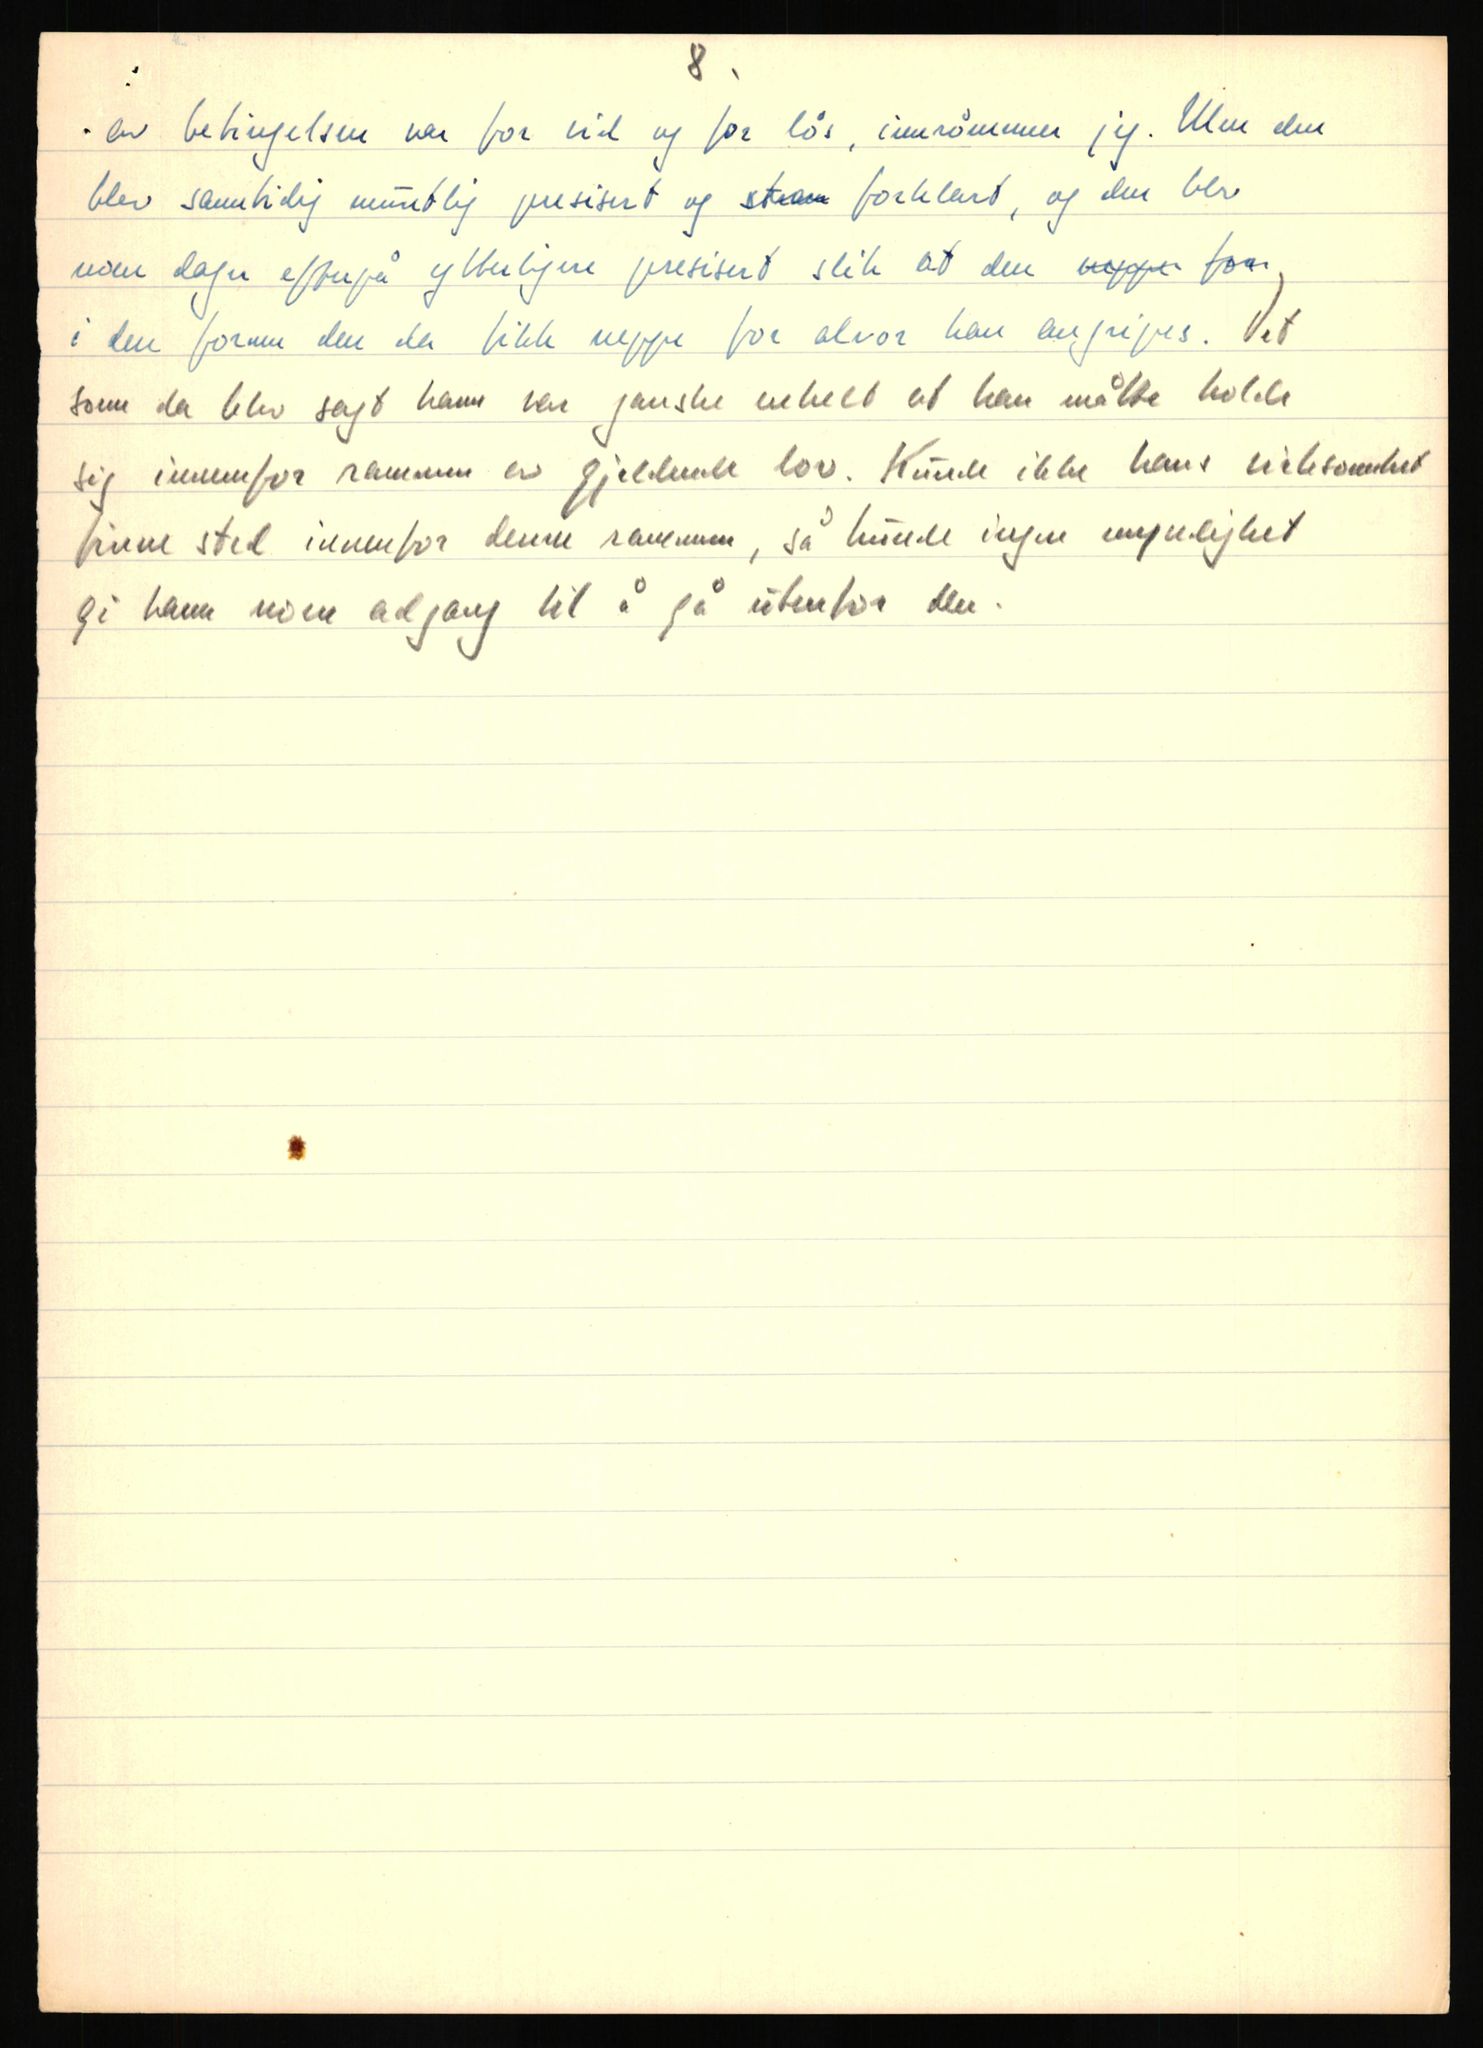 8.
av betingelsen var for vid og for løs, innrømmer jeg. Men den
blev samtidig muntlig presisert og stram forklart, og den blev
noen dager efterpå ytterligere presisert slik at den neppe for
i den formen den da fikk neppe for alvor kan angripes. Det
som da blev sagt ham var ganske enkelt at han måtte holde
sig innenfor rammen av gjeldende lov. Kunde ikke hans virksomhet
finne sted innenfor denne rammen, så kunde ingen myndighet
gi ham noen adgang til å gå utenfor den.